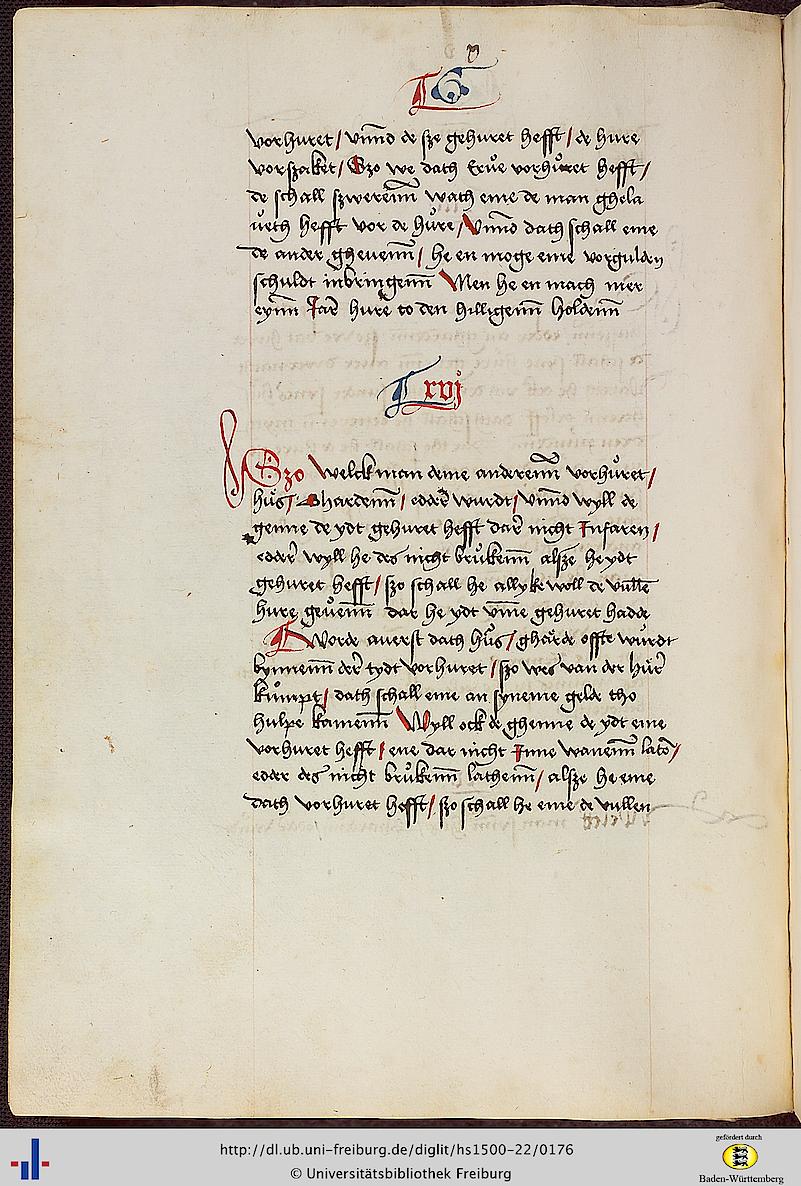 vorhuret / vnnd de sze gehuret hefft / de hure
vorszaket / Szo we dath Erue vorhuret hefft /
de schall szwerenn wath eme de man ghela
ueth hefft vor de hure / Vnnd dath schall eme
de ander gheuenn / he en moge eme vorgulden
schuldt inbringenn Men he en mach mer
eynn Jar hure to den hilligenn holdenn
xvj
Szo welck man deme anderenn vorhuret /
hus / Ghardenn / edder wurdt / vnnd wyll de
genne de ydt gehuret hefft dar nicht Infaren /
edder wyll he des nicht brukenn alsze he ydt
gehuret hefft / szo schall he allyke woll de vulle
hure geuenn dar he ydt vmme gehuret hadde
Worde auerst dath hus / gharde offte wurdt
bynnenn der tydt vorhuret / szo wes van der hure
kumpt / dath schall eme an syneme gelde tho
hulpe kamenn Wyll ock de ghenne de ydt eme
vorhuret hefft / ene dar nicht Inne wanenn laten /
edder des nicht brukenn lathenn / alsze he eme
dath vorhuret hefft / szo schall he eme de vullen
http://dl.ub.uni-freiburg.de/diglit/hs1500-22/0176
© Universitätsbibliothek Freiburg
gefördert durch
Baden-Württemberg